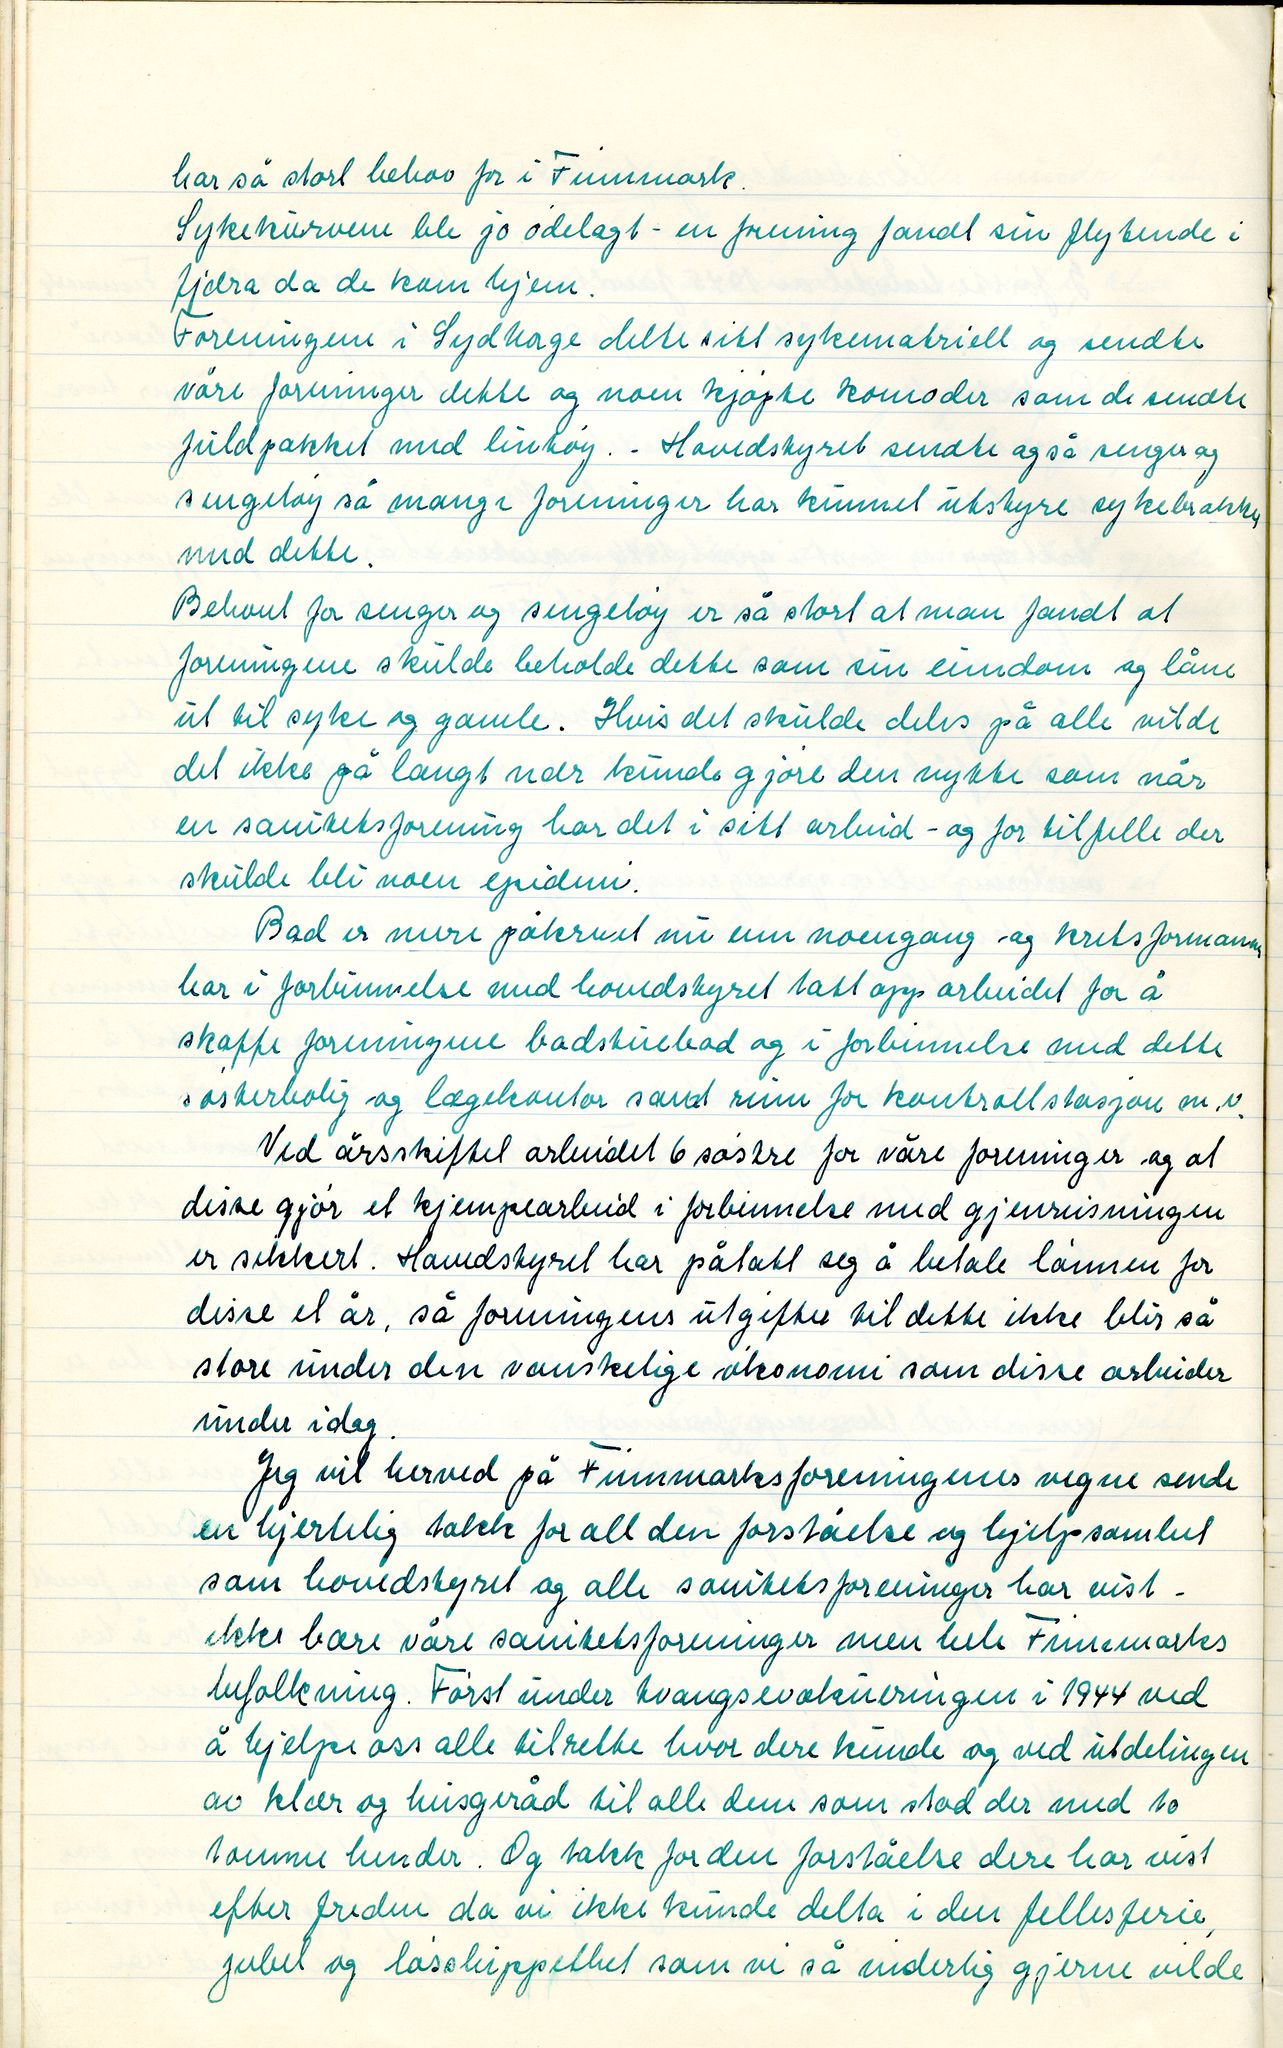 har så stort behov for i Finnmark.
Sykekurvene ble jo ódelagt - en forening fandt sin flytende i
fjæra da de kom hjem.
Foreningene i SydNorge delte sitt sykematriell og sendte
våre foreninger dette og noen kjópte komoder som de sendte
fuldpakket med lintóy. - Hovedstyret sendte også senger og
sengetóy så mange foreninger har kunnet utstyre sykebrakker
med dette.
Behovet for senger og sengetóy er så stort at man fandt at
foreningene skulde beholde dette som sin eiendom og låne
ut til syke og gamle. Hvis det skulde deles på alle vilde
det ikke på langt nær kunde gjóre den nytte som når
en sanitetsforening har det i sitt arbeid - og for tilfelle der
skulde bli noen epidemi.
Bad er mere påkrevet nu enn noengang og kretsformannen
har i forbinnelse med hovedstyret tatt opp arbeidet for å
skaffe foreningene badstuebad og i forbinnelse med dette
sósterbolig og lægekontor samt rum for kontrollstasjon m.v.
Ved årsskiftet arbeidet 6 sóstre for våre foreninger og at
disse gjór et kjempearbeid i forbinnelse med gjenreisningen
er sikkert. Hovedstyret har påtatt seg å betale lónnen for
disse et år, så foreningens utgifter til dette ikke blir så
store under den vanskelige ókonomi som disse arbeider
under idag.
Jeg vil herved på Finnmarksforeningenes vegne sende
en hjertelig takk for all den forståelse og hjelpsomhet
som hovedstyret og alle sanitetsforeninger har vist -
ikke bare våre sanitetsforeninger men hele Finnmarks
befolkning. Fórst under tvangsevakueringen i 1944 ved
å hjelpe oss alle tilrette hvor dere kunde og ved utdelingen
av klær og husgeråd til alle dem som stod der med to
tomme hender. Og takk for den forståelse dere har vist
efter freden da vi ikke kunde delta i den fellesferie,
jubel og lóssluppethet som vi så inderlig gjerne vilde